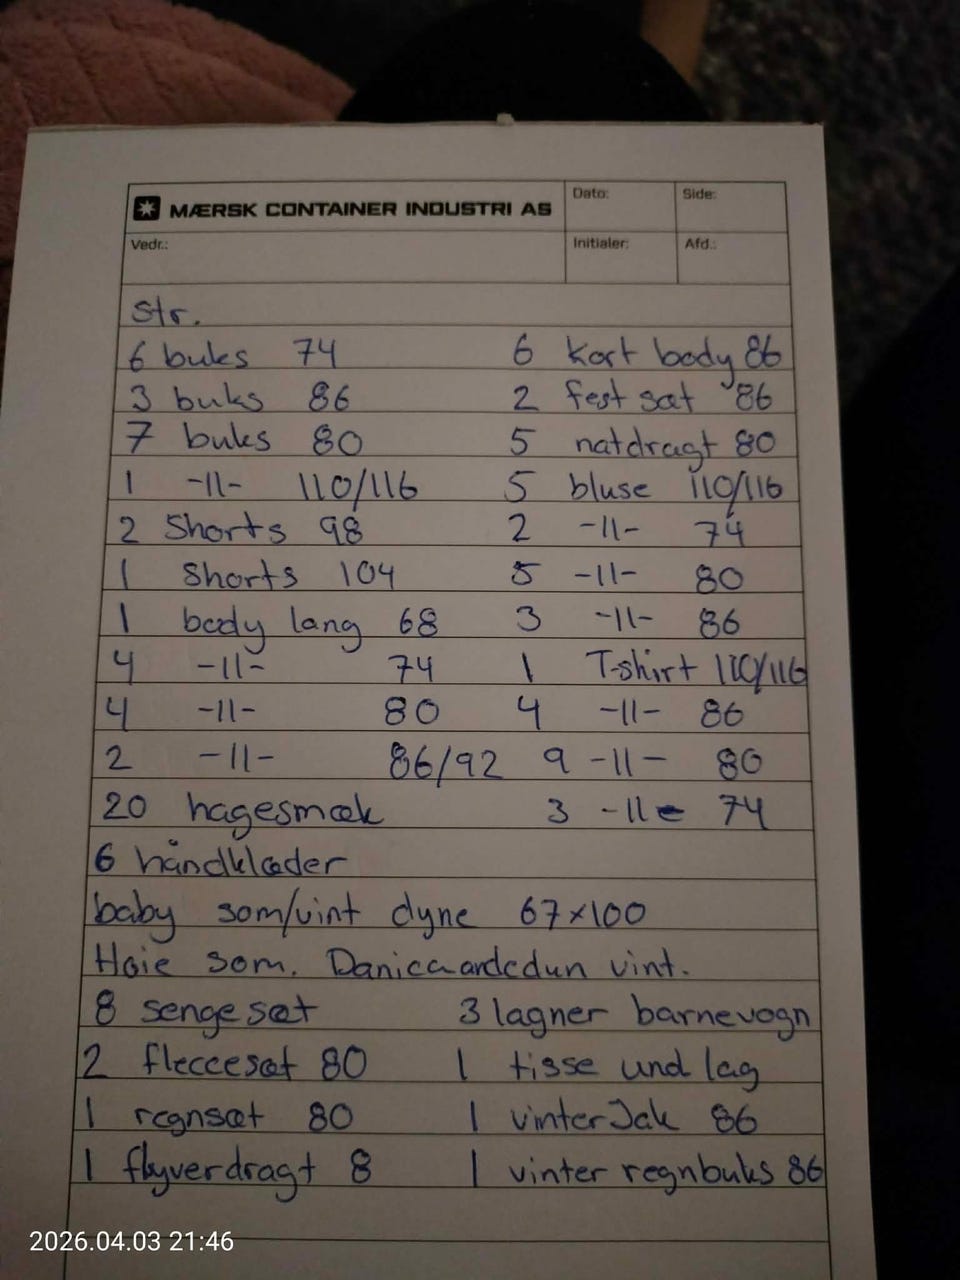 MÆRSK CONTAINER INDUSTRI AS Dato: Side:
Vedr.: Initialer: Afd.:
Str.
6 buks 74 6 Kort body 86
3 buks 86 2 fest sæt 86
7 buks 80 5 natdragt 80
1 -11- 110/116 5 bluse 110/116
2 Shorts 98 2 -11- 74
1 Shorts 104 5 -11- 80
1 body lang 68 3 -11- 86
4 -11- 74 1 T-shirt 110/116
4 -11- 80 4 -11- 86
2 -11- 86/92 9 -11- 80
20 hagesmæk 3 -11- 74
6 håndklæder
baby som/vint dyne 67x100
Høie som. vint.
8 sengesæt 3 lagner barnevogn
2 fleecesæt 80 1 tisse und lag
1 regnsæt 80 1 vinterJak 86
1 flyverdragt 8 1 vinter regnbuks 86
2026.04.03 21:46